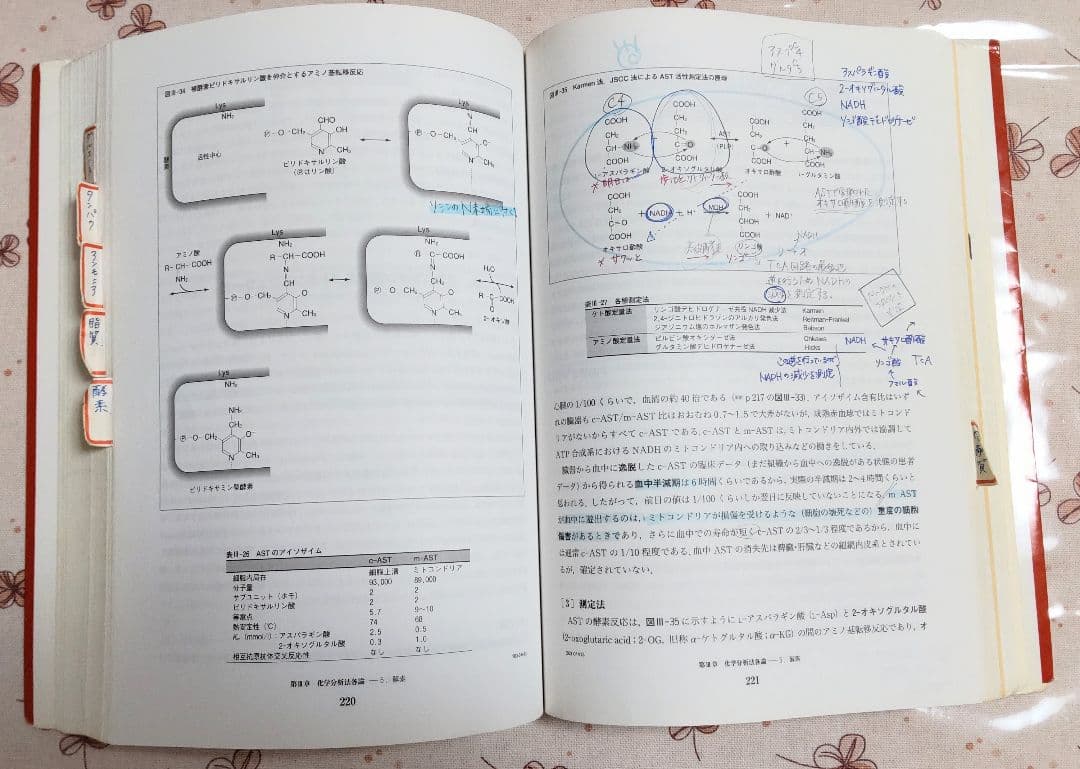 タンパク
アンモニア
脂質
酵素
図Ⅲ-34 補酵素ピリドキサルリン酸を仲介とするアミノ基転移反応
Lys
NH₂
酵素
活性中心
CHO
Ⓟ-O-CH₂
OH
N
CH₃
ピリドキサルリン酸
(Ⓟはリン酸)
Lys
N
CH
Ⓟ-O-CH₂
CH₃
リジンのN末端に
アミノ酸
R-CH-COOH
NH₂
Lys
NH₂
R-CH-COOH
N
CH
Ⓟ-O-CH₂
O⁻
CH₃
Lys
NH₂
R-C-COOH
N
CH₂
Ⓟ-O-CH₂
O⁻
CH₃
H₂O
R-C-COOH
O
2-オキソ酸
Lys
NH₂
NH₂
CH₂
Ⓟ-O-CH₂
O⁻
N
CH₃
ピリドキサミン型酵素
表Ⅲ-26 ASTのアイソザイム
c-AST m-AST
細胞内局在 細胞上清 ミトコンドリア
分子量 93,000 89,000
サブユニット(ホモ) 2 2
ピリドキサルリン酸 2 2
等電点 5.7 9~10
熱安定性(℃) 74 68
Kₘ(mmol/l):アスパラギン酸 2.5 0.5
2-オキソグルタル酸 0.3 1.0
相互抗原抗体交叉反応性 なし なし
第Ⅲ章 化学分析法各論——5. 酵素
220
図Ⅲ-35 Karmen法, JSCC法によるAST活性測定法の原理
アスパラ
グルタミ
アスパラギン酸
2-オキソグルタル酸
NADH
リンゴ酸デヒドロゲナーゼ
C4
COOH
CH₂
CH-NH₂
COOH
L-アスパラギン酸
COOH
CH₂
CH₂
C=O
COOH
2-オキソグルタル酸
AST
(PLP)
COOH
CH₂
C=O
COOH
オキサロ酢酸
+
C5
COOH
CH₂
CH₂
CH-NH₂
COOH
L-グルタミン酸
COOH
CH₂
C=O
COOH
オキサロ酢酸
+ NADH + H⁺
MDH
COOH
CH₂
CHOH
COOH
リンゴ酸
+ NAD⁺
NADH
TCA回路の
表Ⅲ-27 各種測定法
ケト酸定量法 リンゴ酸デヒドロゲナーゼ共役NADH減少法 Karmen
2,4-ジニトロヒドラゾンのアルカリ発色法 Reitman-Frankel
ジアゾニウム塩のホルマザン発色法 Babson
アミノ酸定量法 ピルビン酸オキシダーゼ法 Ohkawa
グルタミン酸デヒドロゲナーゼ法 Hicks
NADH
オキサロ酢酸
リンゴ酸
TCA
フマル酸
NADHの減少を測定
心臓の1/100くらいで,血清の約40倍である(p217の図Ⅲ-33).アイソザイム含有比はいず
れの臓器もc-AST/m-AST比はおおむね0.7~1.5で大差がないが,成熟赤血球ではミトコンド
リアがないからすべてc-ASTである.c-ASTとm-ASTは,ミトコンドリア内外では協調して
ATP合成系におけるNADHのミトコンドリア内への取り込みなどの働きをしている.
臓器から血中に逸脱したc-ASTの臨床データ(まだ組織から血中への逸脱がある状態の患者
データ)から得られる血中半減期は6時間くらいであるから,実際の半減期は2~4時間くらいと
思われる.したがって,前日の値は1/100くらいしか翌日に反映していないことになる.m-AST
が血中に遊出するのは,ミトコンドリアが損傷を受けるような(細胞の壊死などの)重度の細胞
傷害があるときであり,さらに血中での寿命が短くc-ASTの2/3~1/3程度であるから,血中に
は通常c-ASTの1/10程度である.血中ASTの消失先は脾臓・肝臓などの細網内皮系とされてい
るが,確定されていない.
[3] 測定法
ASTの酵素反応は,図Ⅲ-35に示すようにL-アスパラギン酸(L-Asp)と2-オキソグルタル酸
(2-oxoglutaric acid;2-OG,旧称α-ケトグルタル酸;α-KG)の間のアミノ基転移反応であり,オ
第Ⅲ章 化学分析法各論——5. 酵素
221